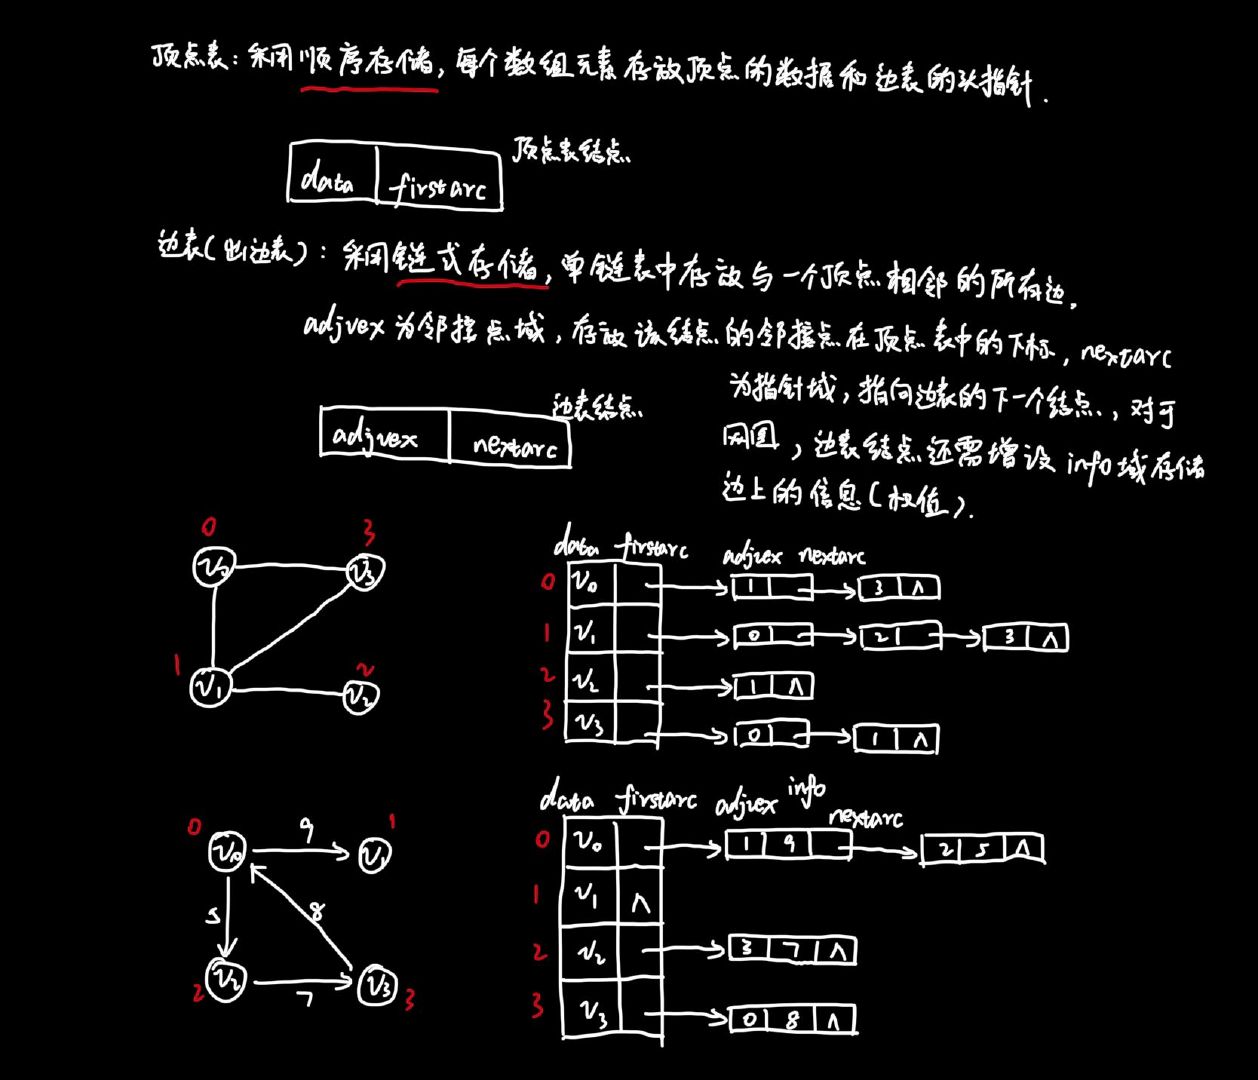 顶点表：采用顺序存储，每个数组元素存放顶点的数据和边表的头指针．
顶点表结点
data firstarc
边表（出边表）：采用链式存储，单链表中存放与一个顶点相邻的所有边，
adjvex 为邻接点域，存放该结点的邻接点在顶点表中的下标，nextarc
为指针域，指向边表的下一个结点，对于
边表结点
adjvex nextarc
网图，边表结点还需增设 info 域存储
边上的信息（权值）．
0 3
V₀ V₃
1 2
V₁ V₂
data firstarc adjvex nextarc
0 V₀ 1 3 ∧
1 V₁ 0 2 3 ∧
2 V₂ 1 ∧
3 V₃ 0 1 ∧
0 9 1
V₀ V₁
5 8
V₂ V₃
2 7 3
data firstarc adjvex info nextarc
0 V₀ 1 9 2 5 ∧
1 V₁ ∧
2 V₂ 3 7 ∧
3 V₃ 0 8 ∧